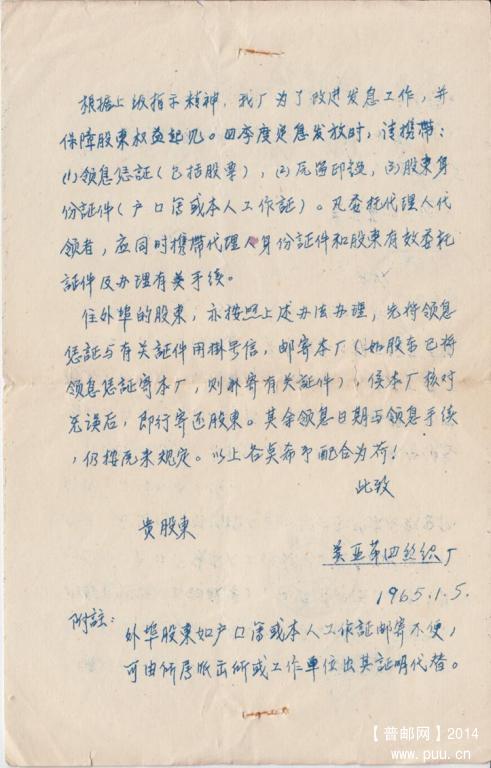 根据上级指示精神，我厂为了改进发息工作，并
保障股東权益起见。四季度定息发放时，请携带：
(1)领息凭証（包括股票），(2)原留印鑑，(3)股東身
份証件（户口簿或本人工作証）。凡委托代理人代
领者，应同时携帶代理人身份証件和股東有效委托
証件及办理有关手续。
住外埠的股東，亦按照上述办法办理，先将领息
凭証与有关証件用掛号信，邮寄本厂（如股东已将
领息凭証寄本厂，则补寄有关証件），俟本厂核对
无误后，即行寄还股東。其余领息日期与领息手续
，仍按原来规定。以上各点希予配合为荷！
此致
贵股東
美亚第四丝织厂
1965.1.5.
附註：
外埠股東如户口簿或本人工作証邮寄不便，
可由所属派出所或工作单位出具証明代替。
【普邮网】2014
www.puu.cn